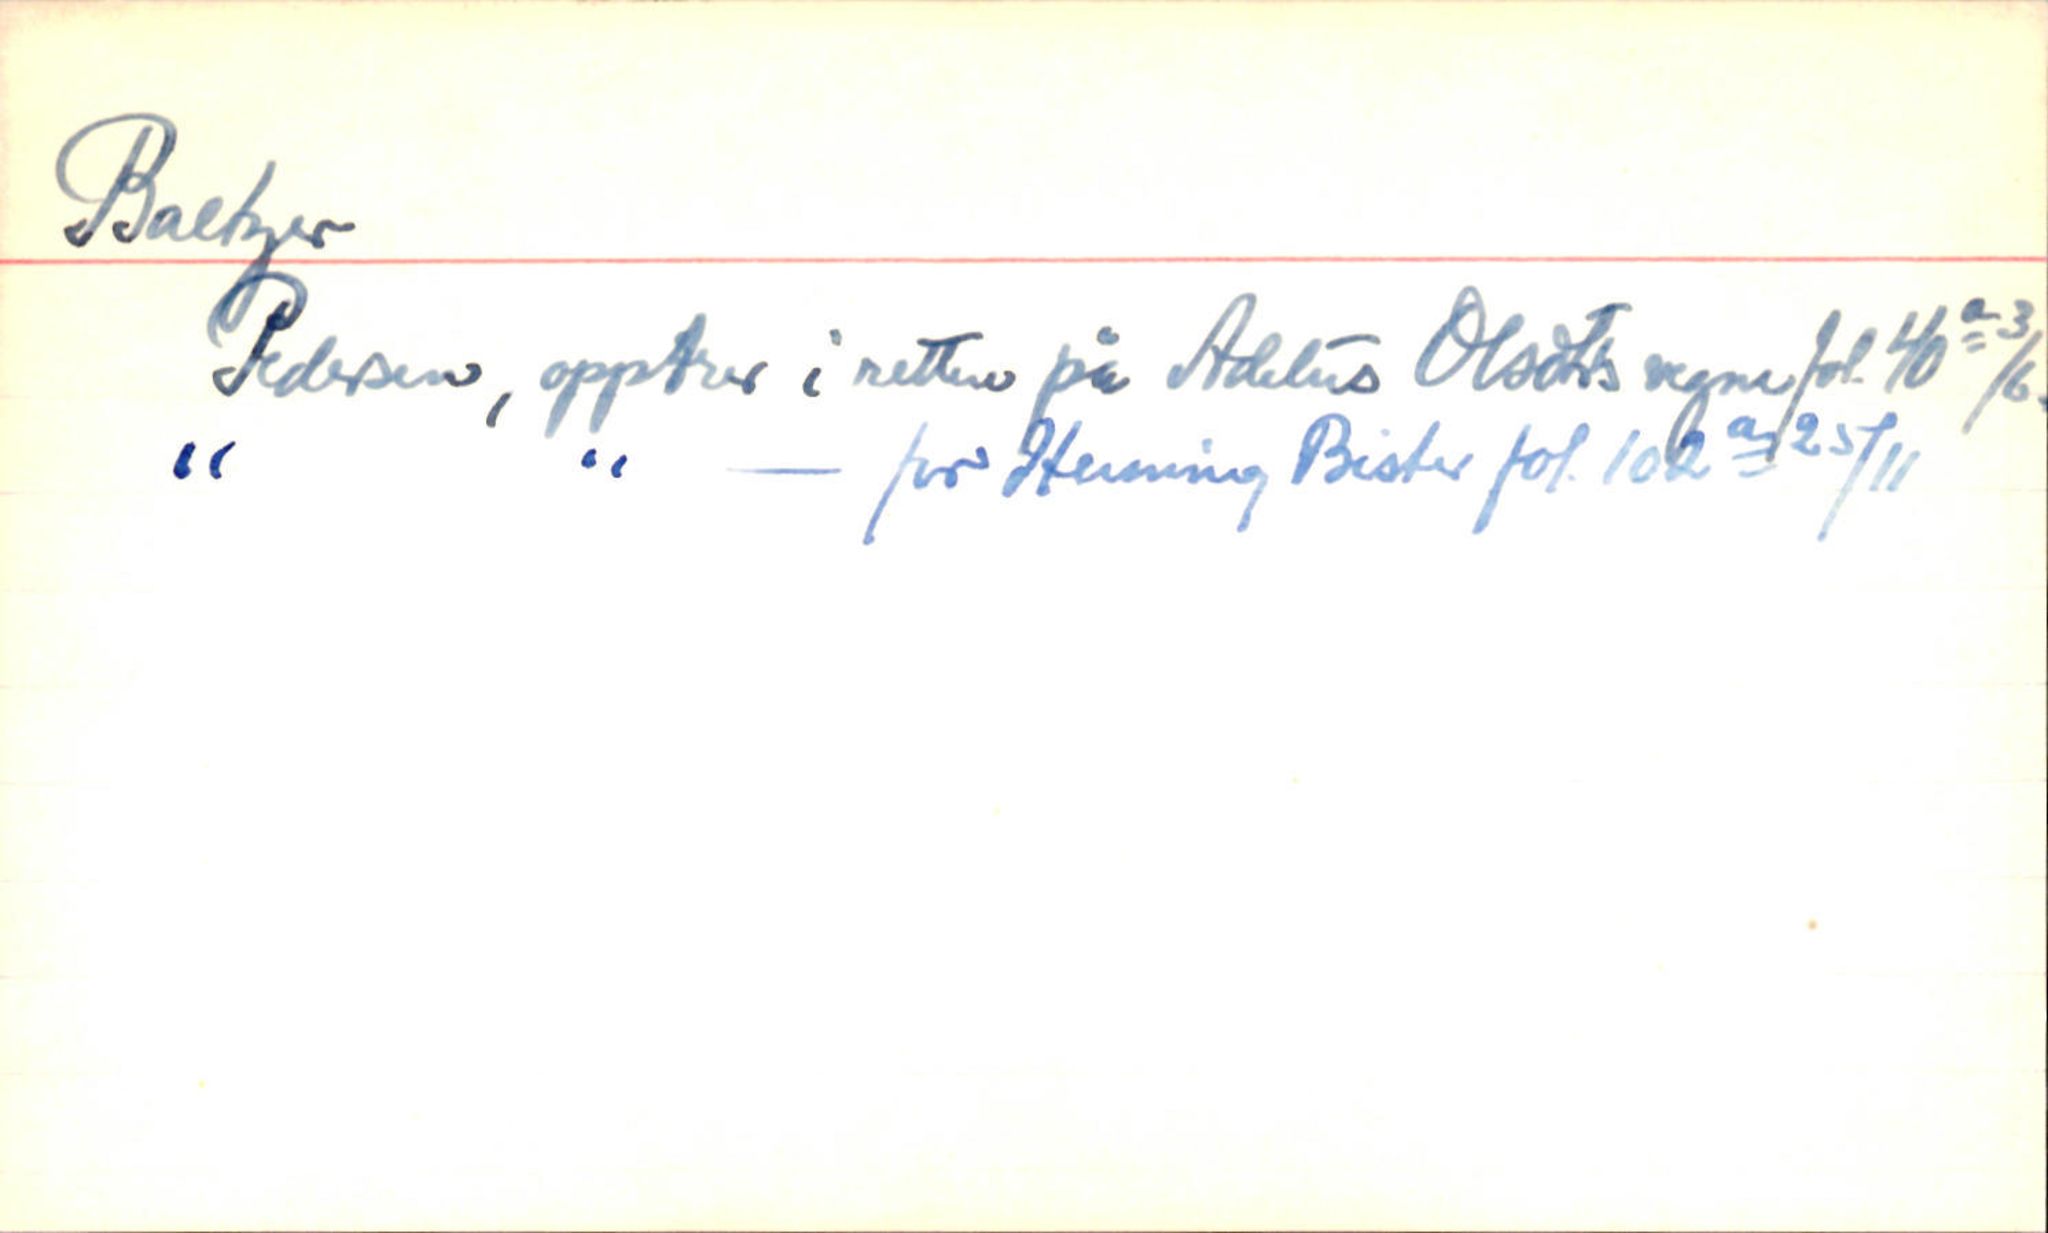 Baltzer
Pedersen, opptrer i retten på Adelus Olsdtrs vegne fol. 40a 3/6.
" " — for Henning Bister fol. 102a 25/11